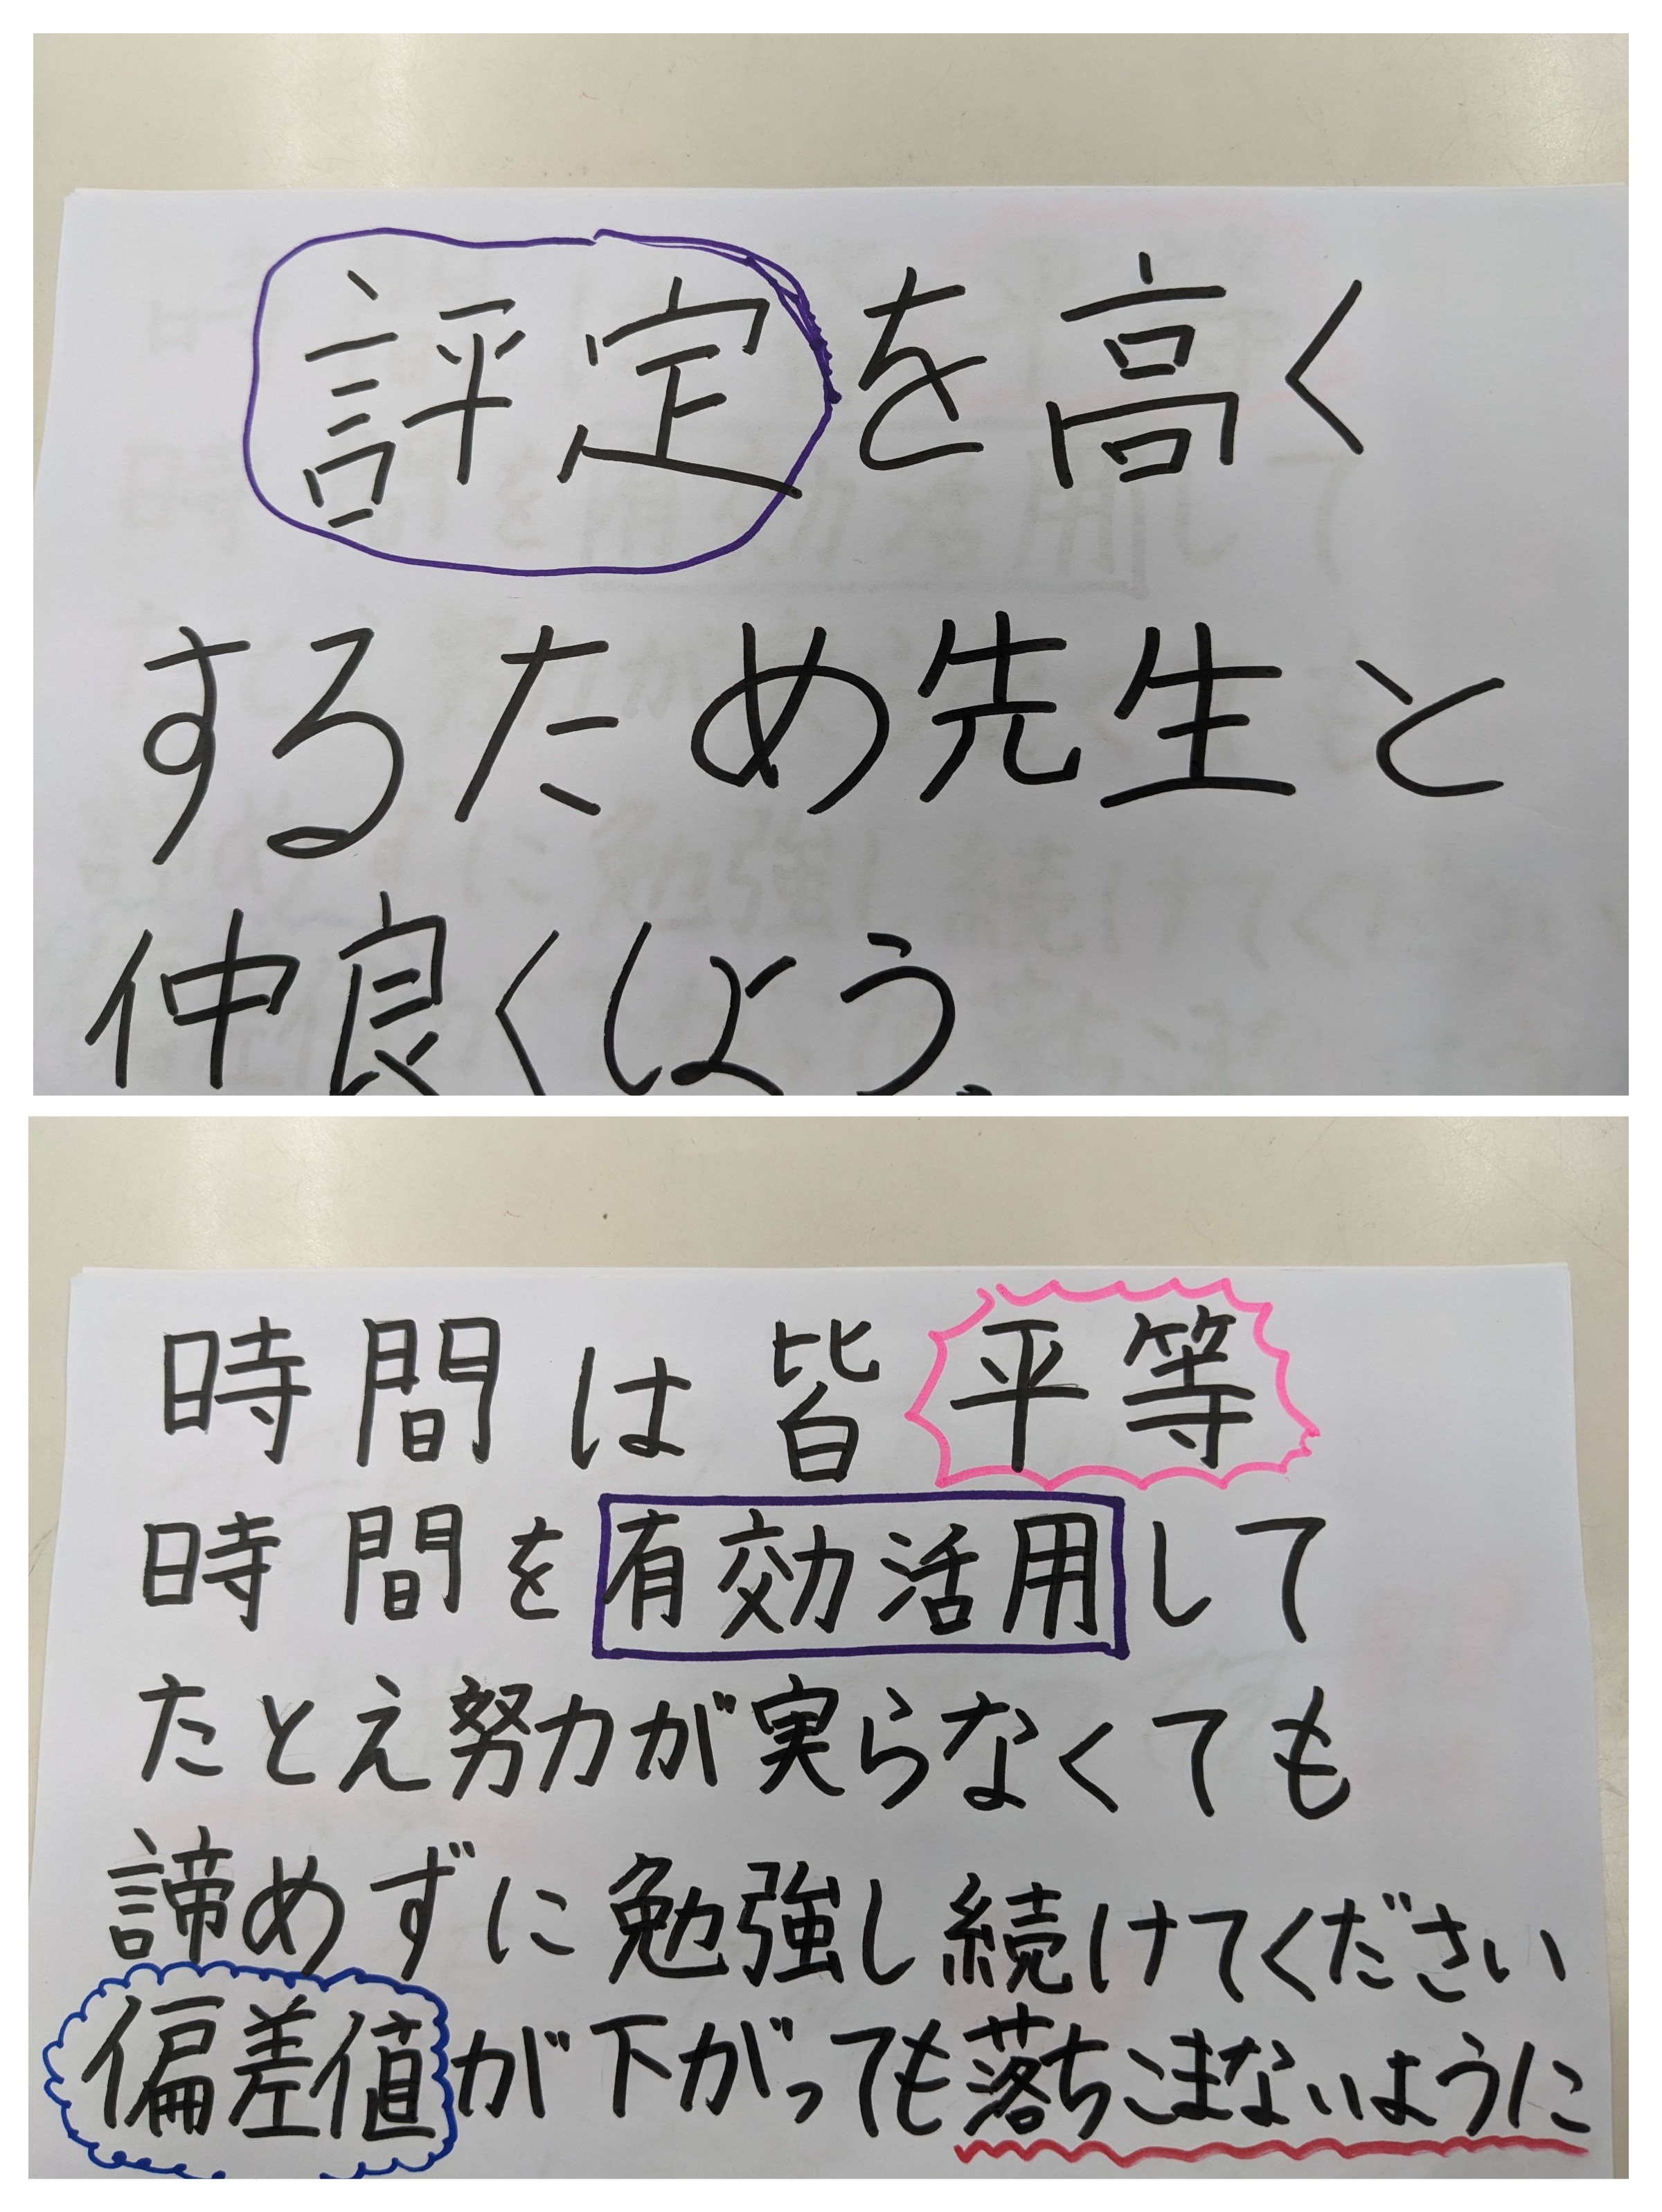 評定を高く
するため先生と
仲良くしよう。
時間は皆平等
時間を有効活用して
たとえ努力が実らなくても
諦めずに勉強し続けてください
偏差値が下がっても落ちこまないように